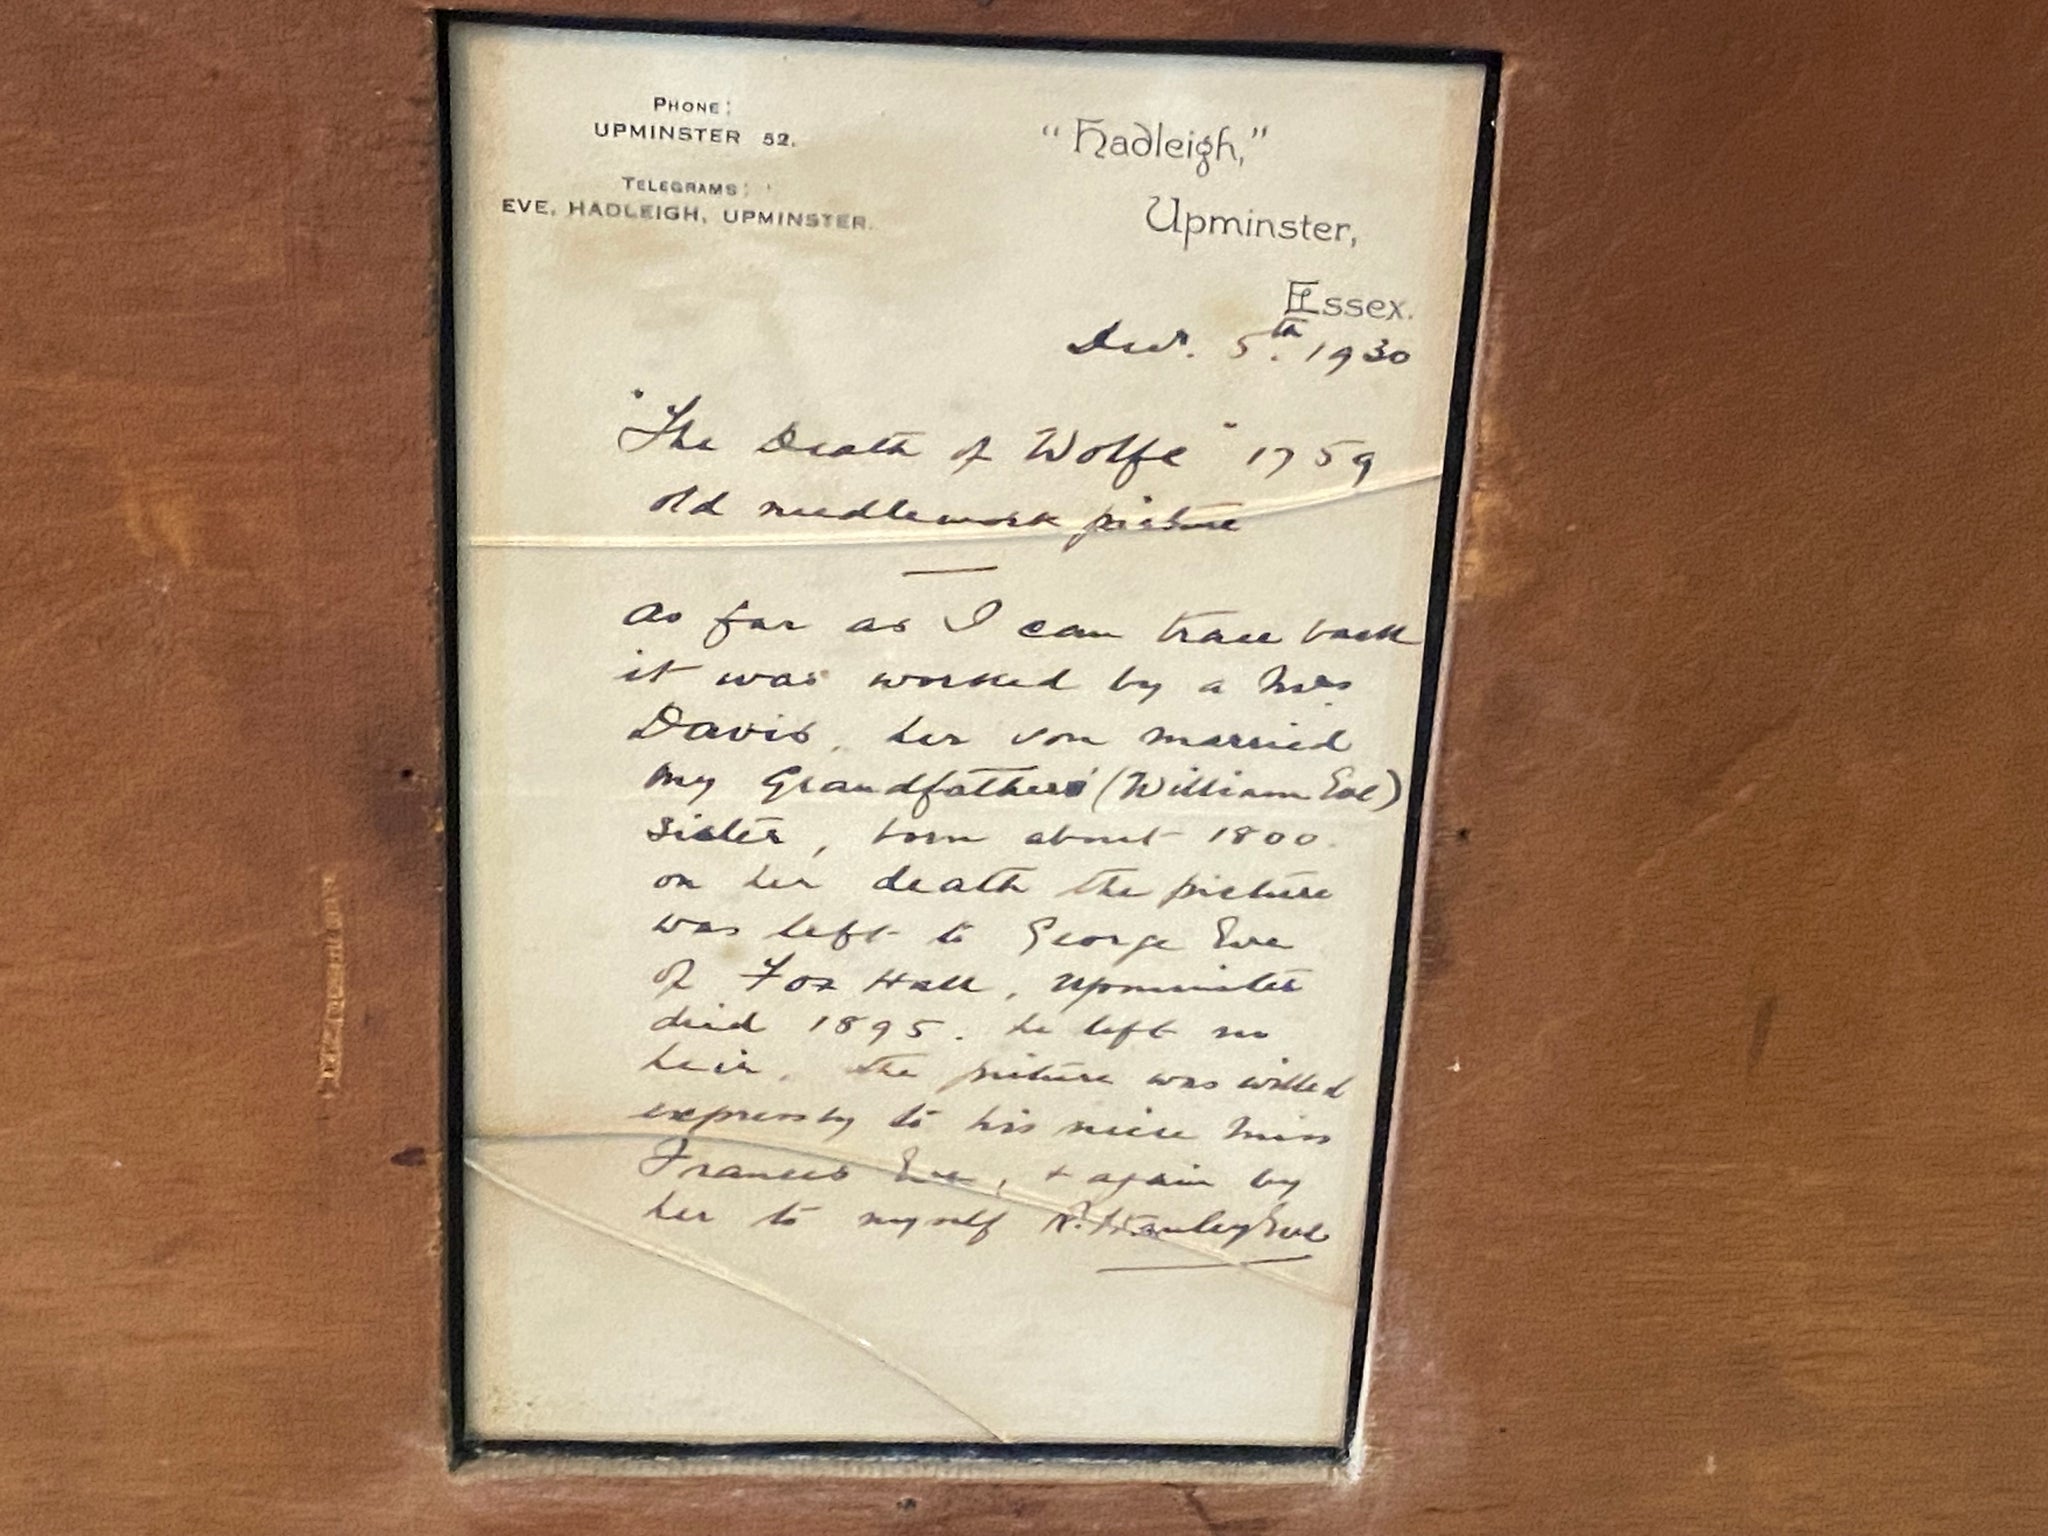 PHONE:
UPMINSTER 52.
TELEGRAMS:
EVE, HADLEIGH, UPMINSTER.
"Hadleigh,"
Upminster,
Essex.
Decr. 5th. 1930
"The Death of Wolfe" 1759
old needlework picture
as far as I can trace back
it was worked by a Mrs
Davis, her son married
my Grandfather's (William Eve)
sister, born about 1800.
on her death the picture
was left to George Eve
of Fox Hall, Upminster
died 1895. he left no
heir. the picture was willed
expressly to his niece Miss
Frances Eve, + again by
her to myself Eve